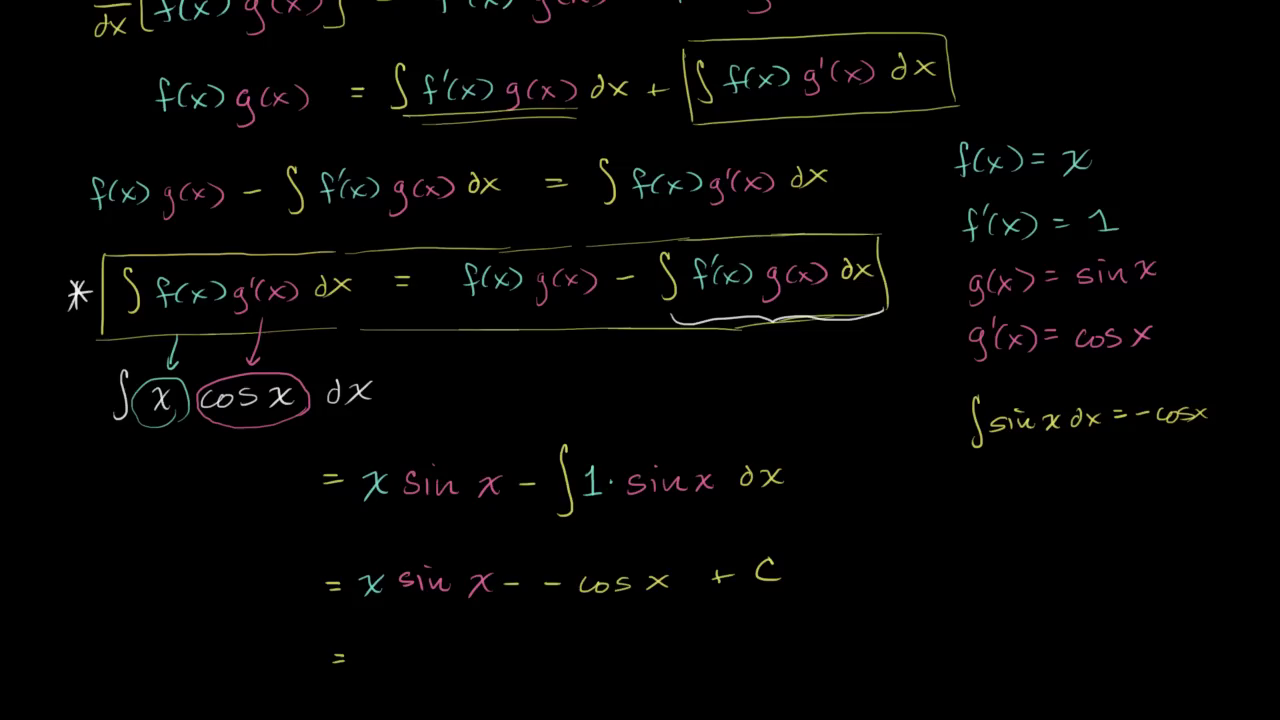 dx [f(x) g(x)]
f(x) g(x) = ∫ f'(x) g(x) dx + ∫ f(x) g'(x) dx
f(x) g(x) - ∫ f'(x) g(x) dx = ∫ f(x) g'(x) dx
* ∫ f(x) g'(x) dx = f(x) g(x) - ∫ f'(x) g(x) dx
∫ x cos x dx
= x sin x - ∫ 1 · sin x dx
= x sin x - - cos x + C
=
f(x) = x
f'(x) = 1
g(x) = sin x
g'(x) = cos x
∫ sin x dx = - cos x